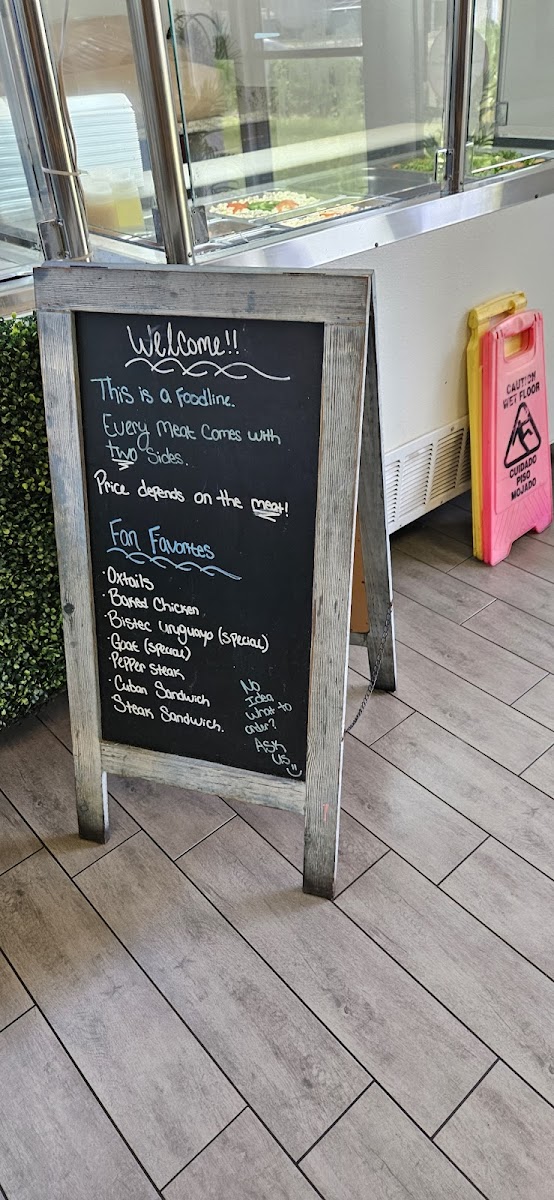 Welcome!!
This is a Foodline.
Every Meat Comes with
two sides.
Price depends on the meat!
Fan Favorites
· Oxtails
· Baked Chicken
· Bistec Uruguayo (special)
· Goat (special)
· Pepper steak
· Cuban Sandwich
· Steak Sandwich.
No
Idea
What to
order?
ASK
us
CAUTION
WET FLOOR
CUIDADO
PISO
MOJADO